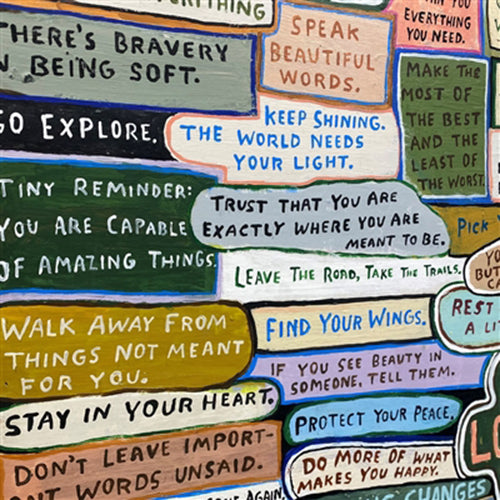 EVERYTHING
THERE'S BRAVERY
BEING SOFT.
SPEAK
BEAUTIFUL
WORDS.
YOU
EVERYTHING
YOU NEED.
MAKE THE
MOST OF
THE BEST
AND THE
LEAST OF
THE WORST.
GO EXPLORE.
KEEP SHINING.
THE WORLD NEEDS
YOUR LIGHT.
TINY REMINDER:
YOU ARE CAPABLE
OF AMAZING THINGS.
TRUST THAT YOU ARE
EXACTLY WHERE YOU ARE
MEANT TO BE.
PICK
LEAVE THE ROAD, TAKE THE TRAILS.
YO
BUT
CA
WALK AWAY FROM
THINGS NOT MEANT
FOR YOU.
FIND YOUR WINGS.
REST
A LI
IF YOU SEE BEAUTY IN
SOMEONE, TELL THEM.
STAY IN YOUR HEART.
PROTECT YOUR PEACE.
DON'T LEAVE IMPORT-
ANT WORDS UNSAID.
DO MORE OF WHAT
MAKES YOU HAPPY.
LO
AGAIN,
CHANGES